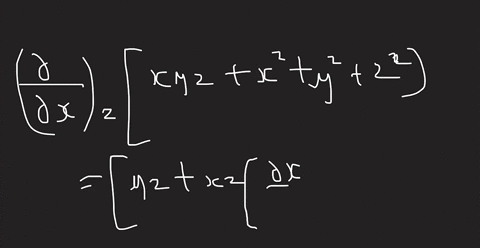 (∂/∂x)_z [xyz + x² + y² + z²)
= [yz + xz [ ∂x